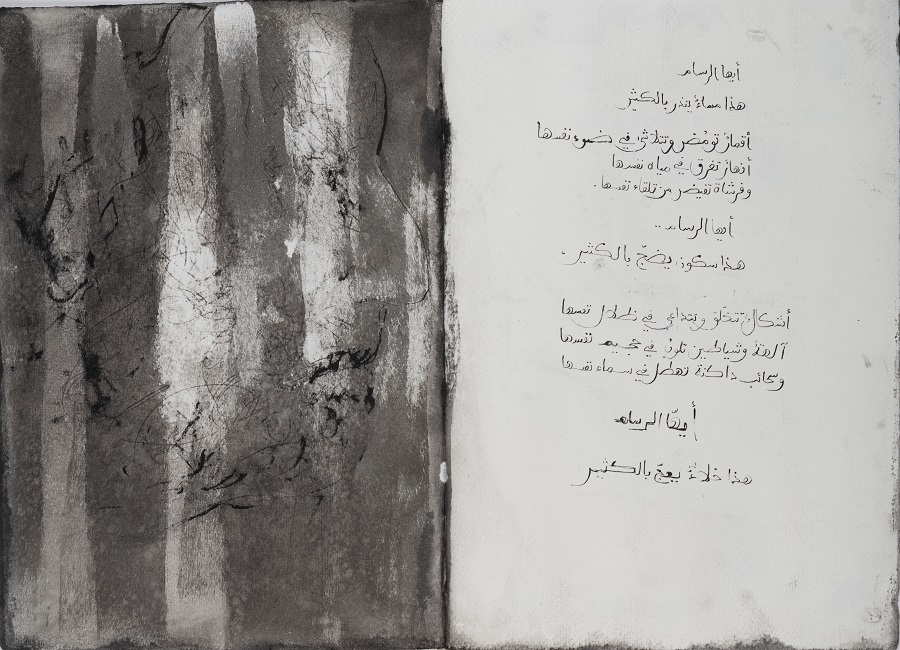 أيها الرسام
هذا مساءٌ ينذر بالكثير
أقمارٌ تومض وتتلاشى في ضوء نفسها
أنهارٌ تغرق في مياه نفسها
وفرشاة تفيض من تلقاء نفسها.
أيها الرسام..
هذا سكون يضجّ بالكثير.
أشكال تتخلّق وتتداعى في ظلال نفسها
آلهةٌ وشياطين تلوبُ في جحيم نفسها
وسحائب داكنة تهطل في سماء نفسها
أيّها الرسام
هذا خلاءٌ يعجّ بالكثير